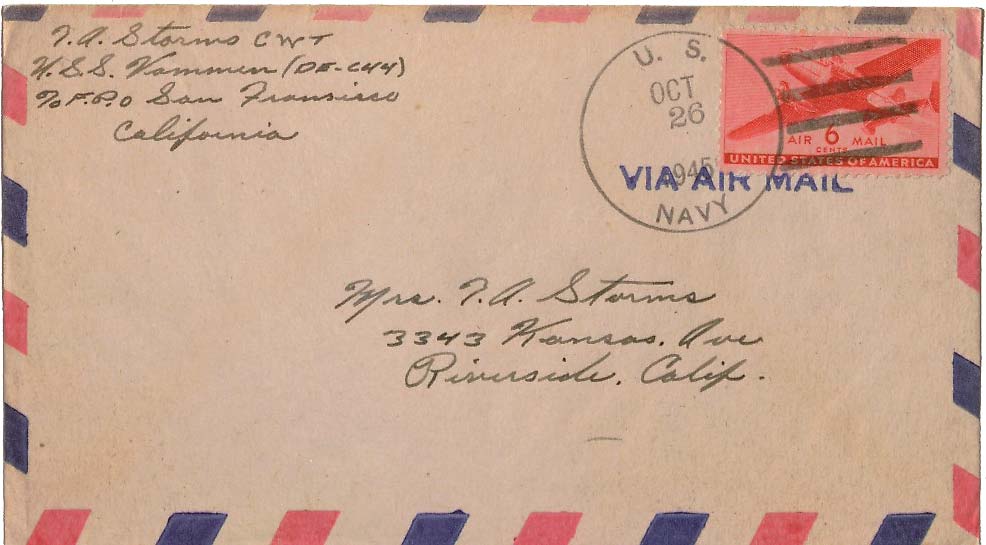 T.A. Storms CWT
U.S.S. Vammen (DE-644)
℅ F.P.O San Fransisco
California
U. S.
OCT
26
1945
NAVY
AIR 6 MAIL
CENTS
UNITED STATES OF AMERICA
VIA AIR MAIL
Mrs. T.A. Storms
3343 Kansas. Ave
Riverside, Calif.